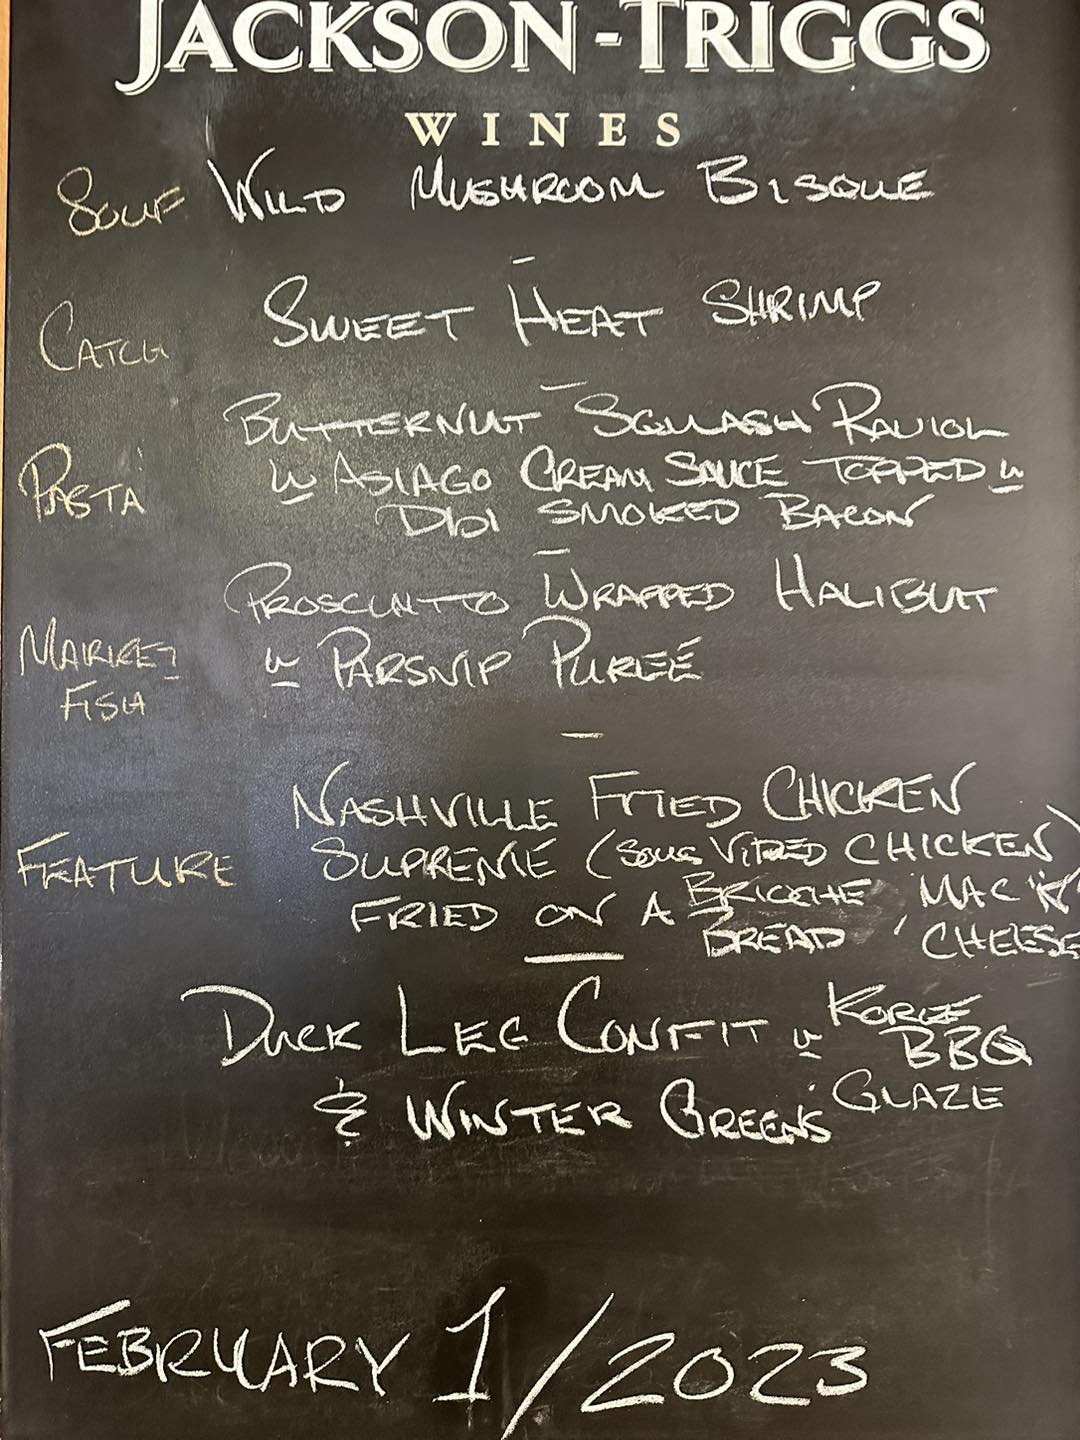 JACKSON-TRIGGS
WINES
SOUP WILD MUSHROOM BISQUE
-
CATCH SWEET HEAT SHRIMP
-
BUTTERNUT SQUASH RAVIOLI
PASTA W ASIAGO CREAM SAUCE TOPPED W
SMOKED BACON
-
PROSCUITTO WRAPPED HALIBUT
MARKET W PARSNIP PUREÉ
FISH
-
NASHVILLE FRIED CHICKEN
FEATURE SUPREME (SOUS VIDED CHICKEN)
FRIED ON A BRIOCHE MAC 'N'
BREAD, CHEESE
-
DUCK LEG CONFIT W BBQ
& WINTER GREENS GLAZE
FEBRUARY 1/2023